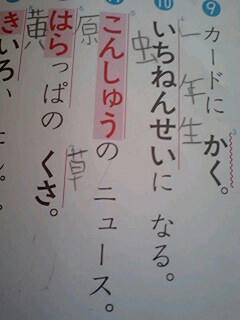 ⑨ カードに かく。
一年生
⑩ いちねんせいに なる。
虫
こんしゅうの ニュース。
原
草
はらっぱの くさ。
黄
きいろい